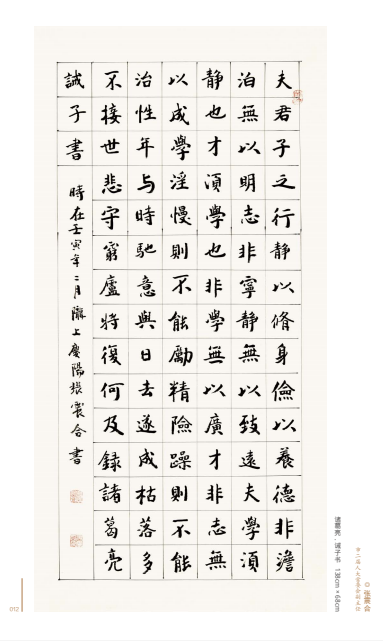 夫君子之行静以脩身儉以養德非澹
泊無以明志非寧静無以致遠夫學須
静也才須學也非學無以廣才非志無
以成學淫慢則不能勵精險躁則不能
治性年与時馳意與日去遂成枯落多
不接世悲守窮廬將復何及録諸葛亮
誡子書
時在壬寅年二月隴上慶陽張震合書
张震合
市二届人大常委会副主任
诸葛亮·诫子书 138cm×68cm
012